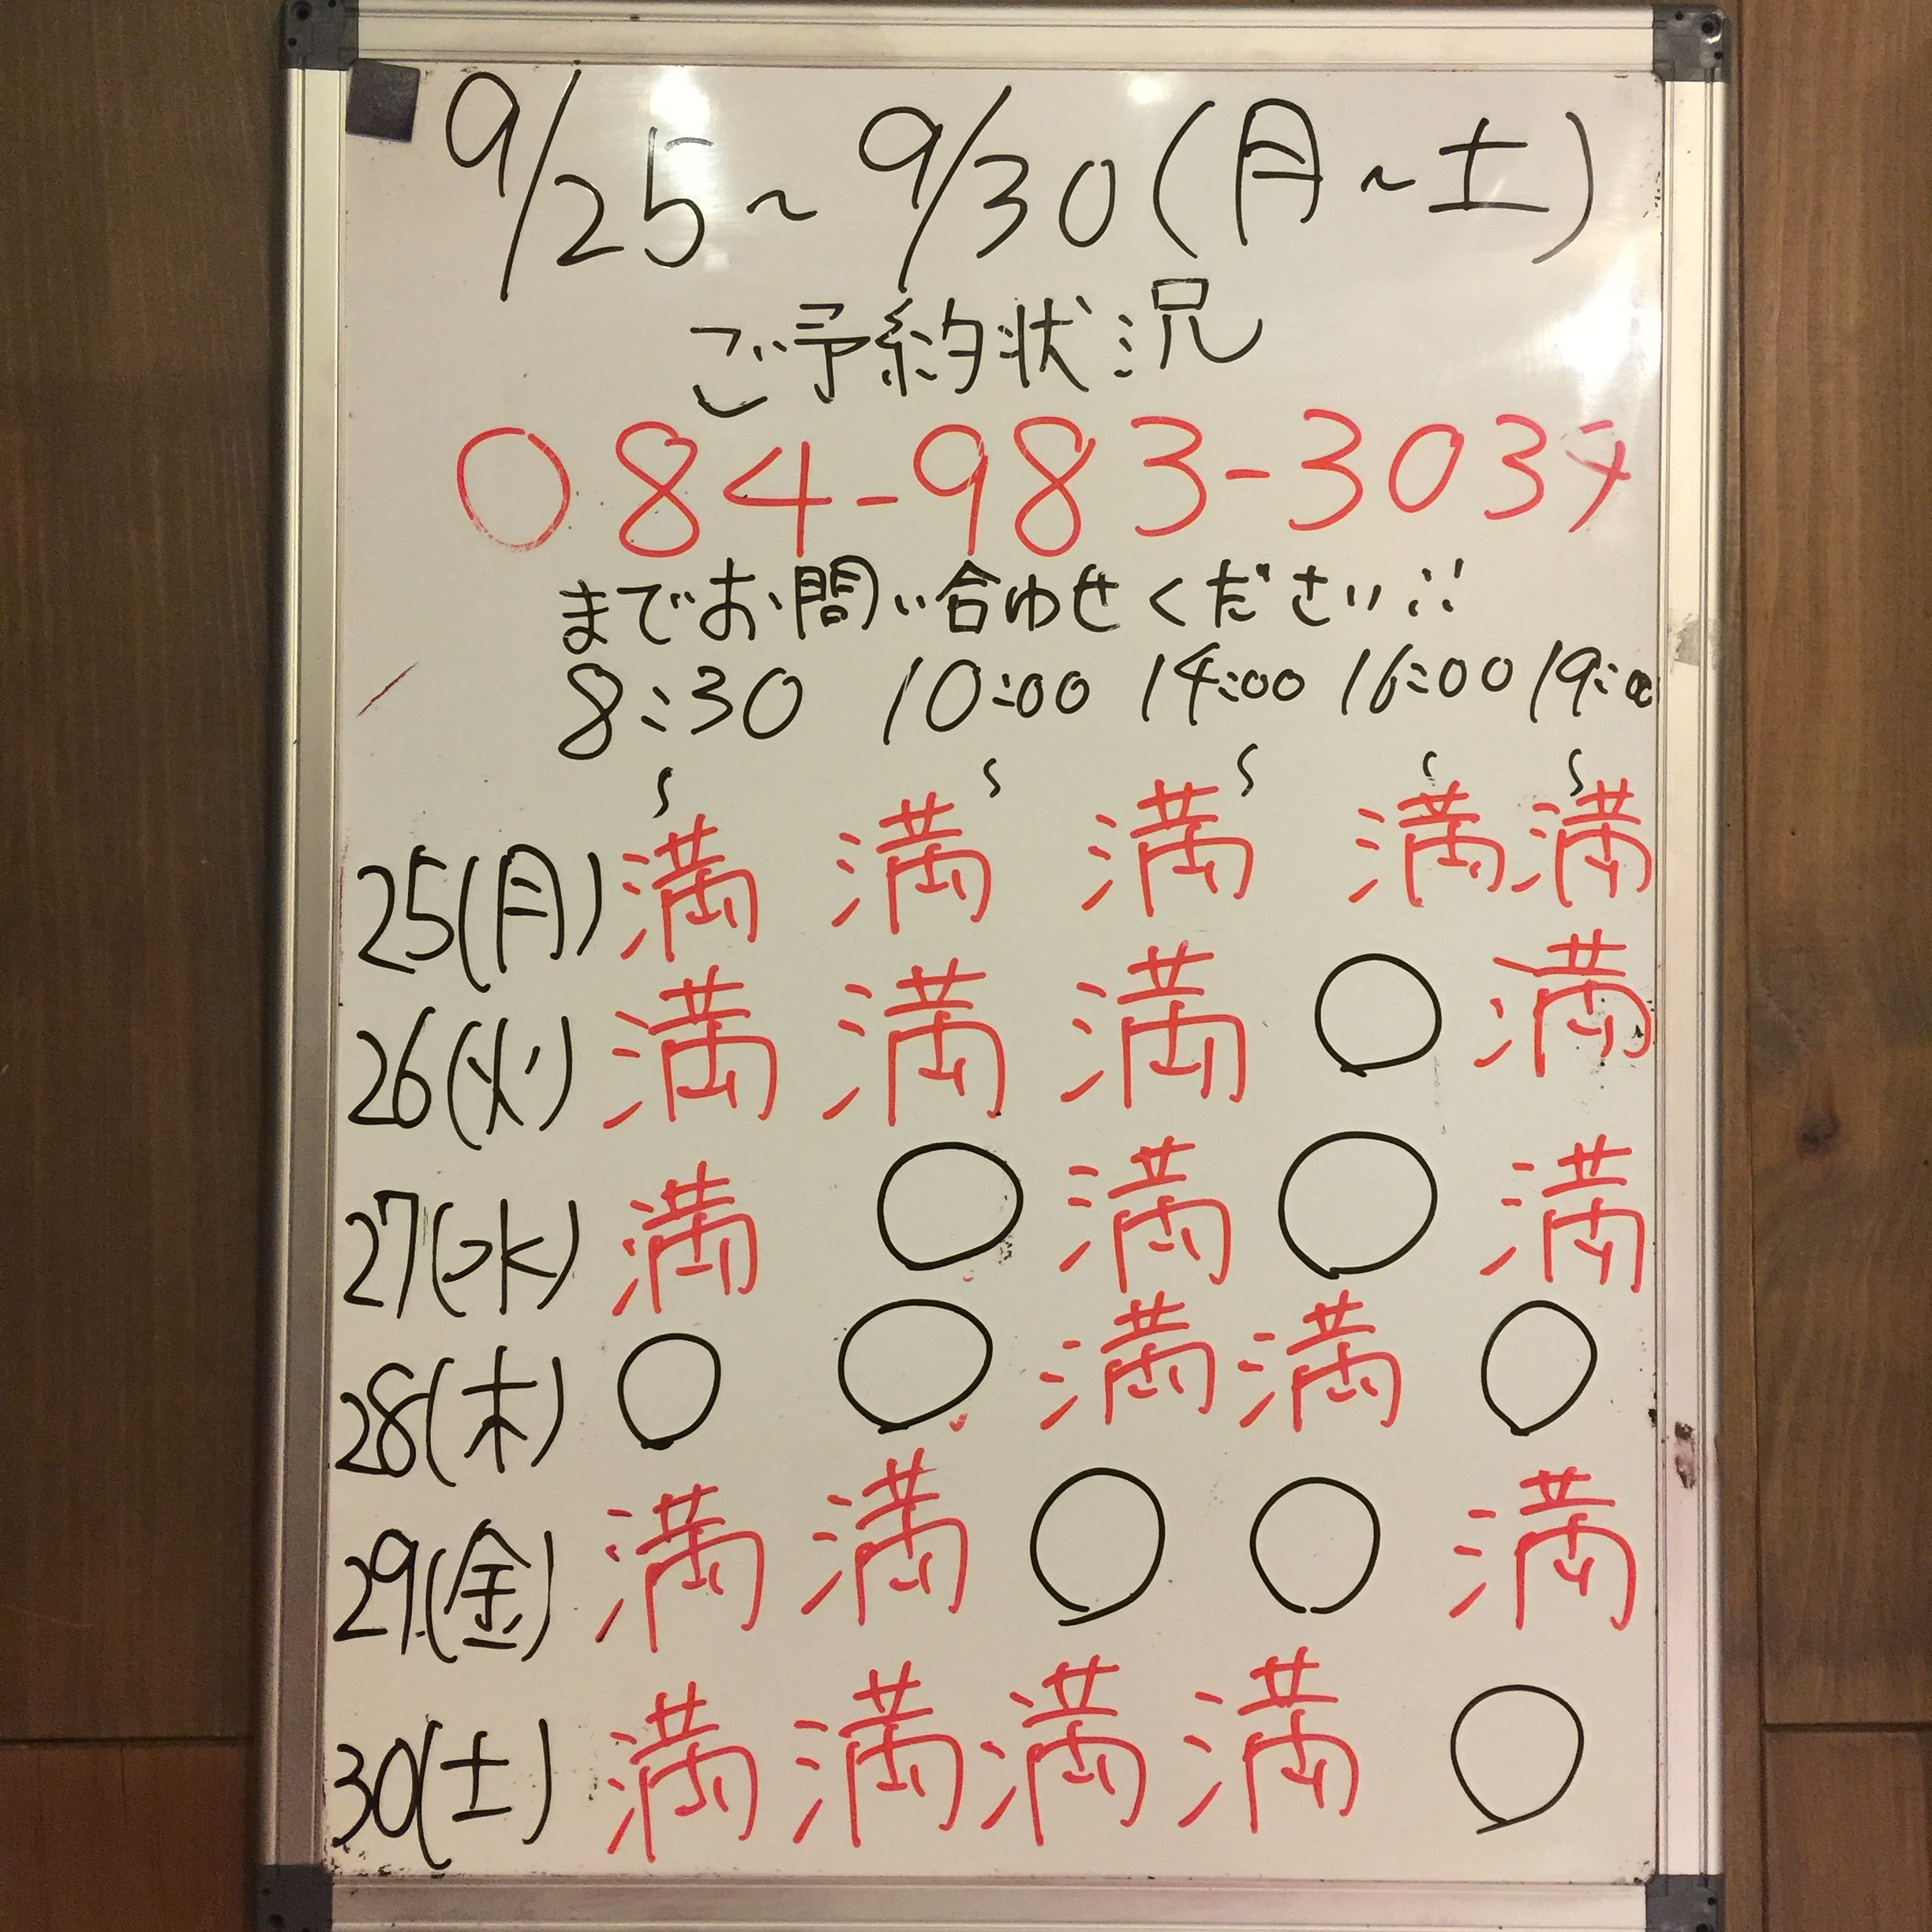 9/25~9/30(月~土)
ご予約状況
084-983-303
までお問い合わせください!!
8:30 10:00 14:00 16:00 19:00
~ ~ ~ ~ ~
25(月) 満 満 満 満 満
26(火) 満 満 満 ○ 満
27(水) 満 ○ 満 ○ 満
28(木) ○ ○ 満 満 ○
29(金) 満 満 ○ ○ 満
30(土) 満 満 満 満 ○